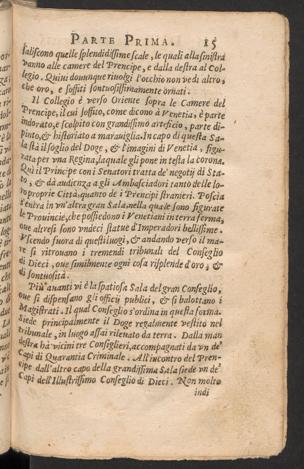 PARTE PRIMA. 15
saliscono quelle splendidissime scale, le quali alla sinistra
vanno alle camere del Prencipe, e dalla destra al Col-
legio. Quiui douunque riuolgi l'occhio non vedi altro,
che oro, e soffiti sontuosissimamente ornati.
Il Collegio è verso Oriente sopra le Camere del
Prencipe, il cui soffito, come dicono à Venetia, è parte
indorato, e scolpito con grandissimo arteficio, parte di-
pinto, & historiato a marauiglia. In capo di questa Sa-
la stà il soglio del Doge, & l'imagini di Venetia, figu-
rata per vna Regina, la quale gli pone in testa la corona.
Qui il Principe con i Senatori tratta de' negotij di Sta-
to, & dà audienza a gli Ambasciadori tanto delle lo-
ro proprie Città, quanto de i Prencipi stranieri. Poscia
s'entra in vn'altra gran Sala, nella quale sono figurate
le Prouincie, che possiedono i Venetiani in terra ferma,
oue altresi sono vndeci statue d'Imperadori bellissime.
Vscendo fuora di questi luoghi, & andando verso il ma-
re si ritrouano i tremendi tribunali del Conseglio
di Dieci, oue similmente ogni cosa risplende d'oro, &
di sontuosità.
Più auanti vi è la spatiosa Sala del gran Conseglio,
oue si dispensano gli officij publici, & si balottano i
Magistrati. Il qual Conseglio s'ordina in questa forma.
Siede principalmente il Doge regalmente vestito nel
tribunale, in luogo assai rileuato da terra. Dalla man
destra hà vicini tre Consiglieri, accompagnati da vn de'
Capi di Quarantia Criminale. All'incontro del Pren-
cipe dall'altro capo della grandissima Sala siede vn de'
Capi dell'Illustrissimo Conseglio di Dieci. Non molto
indi